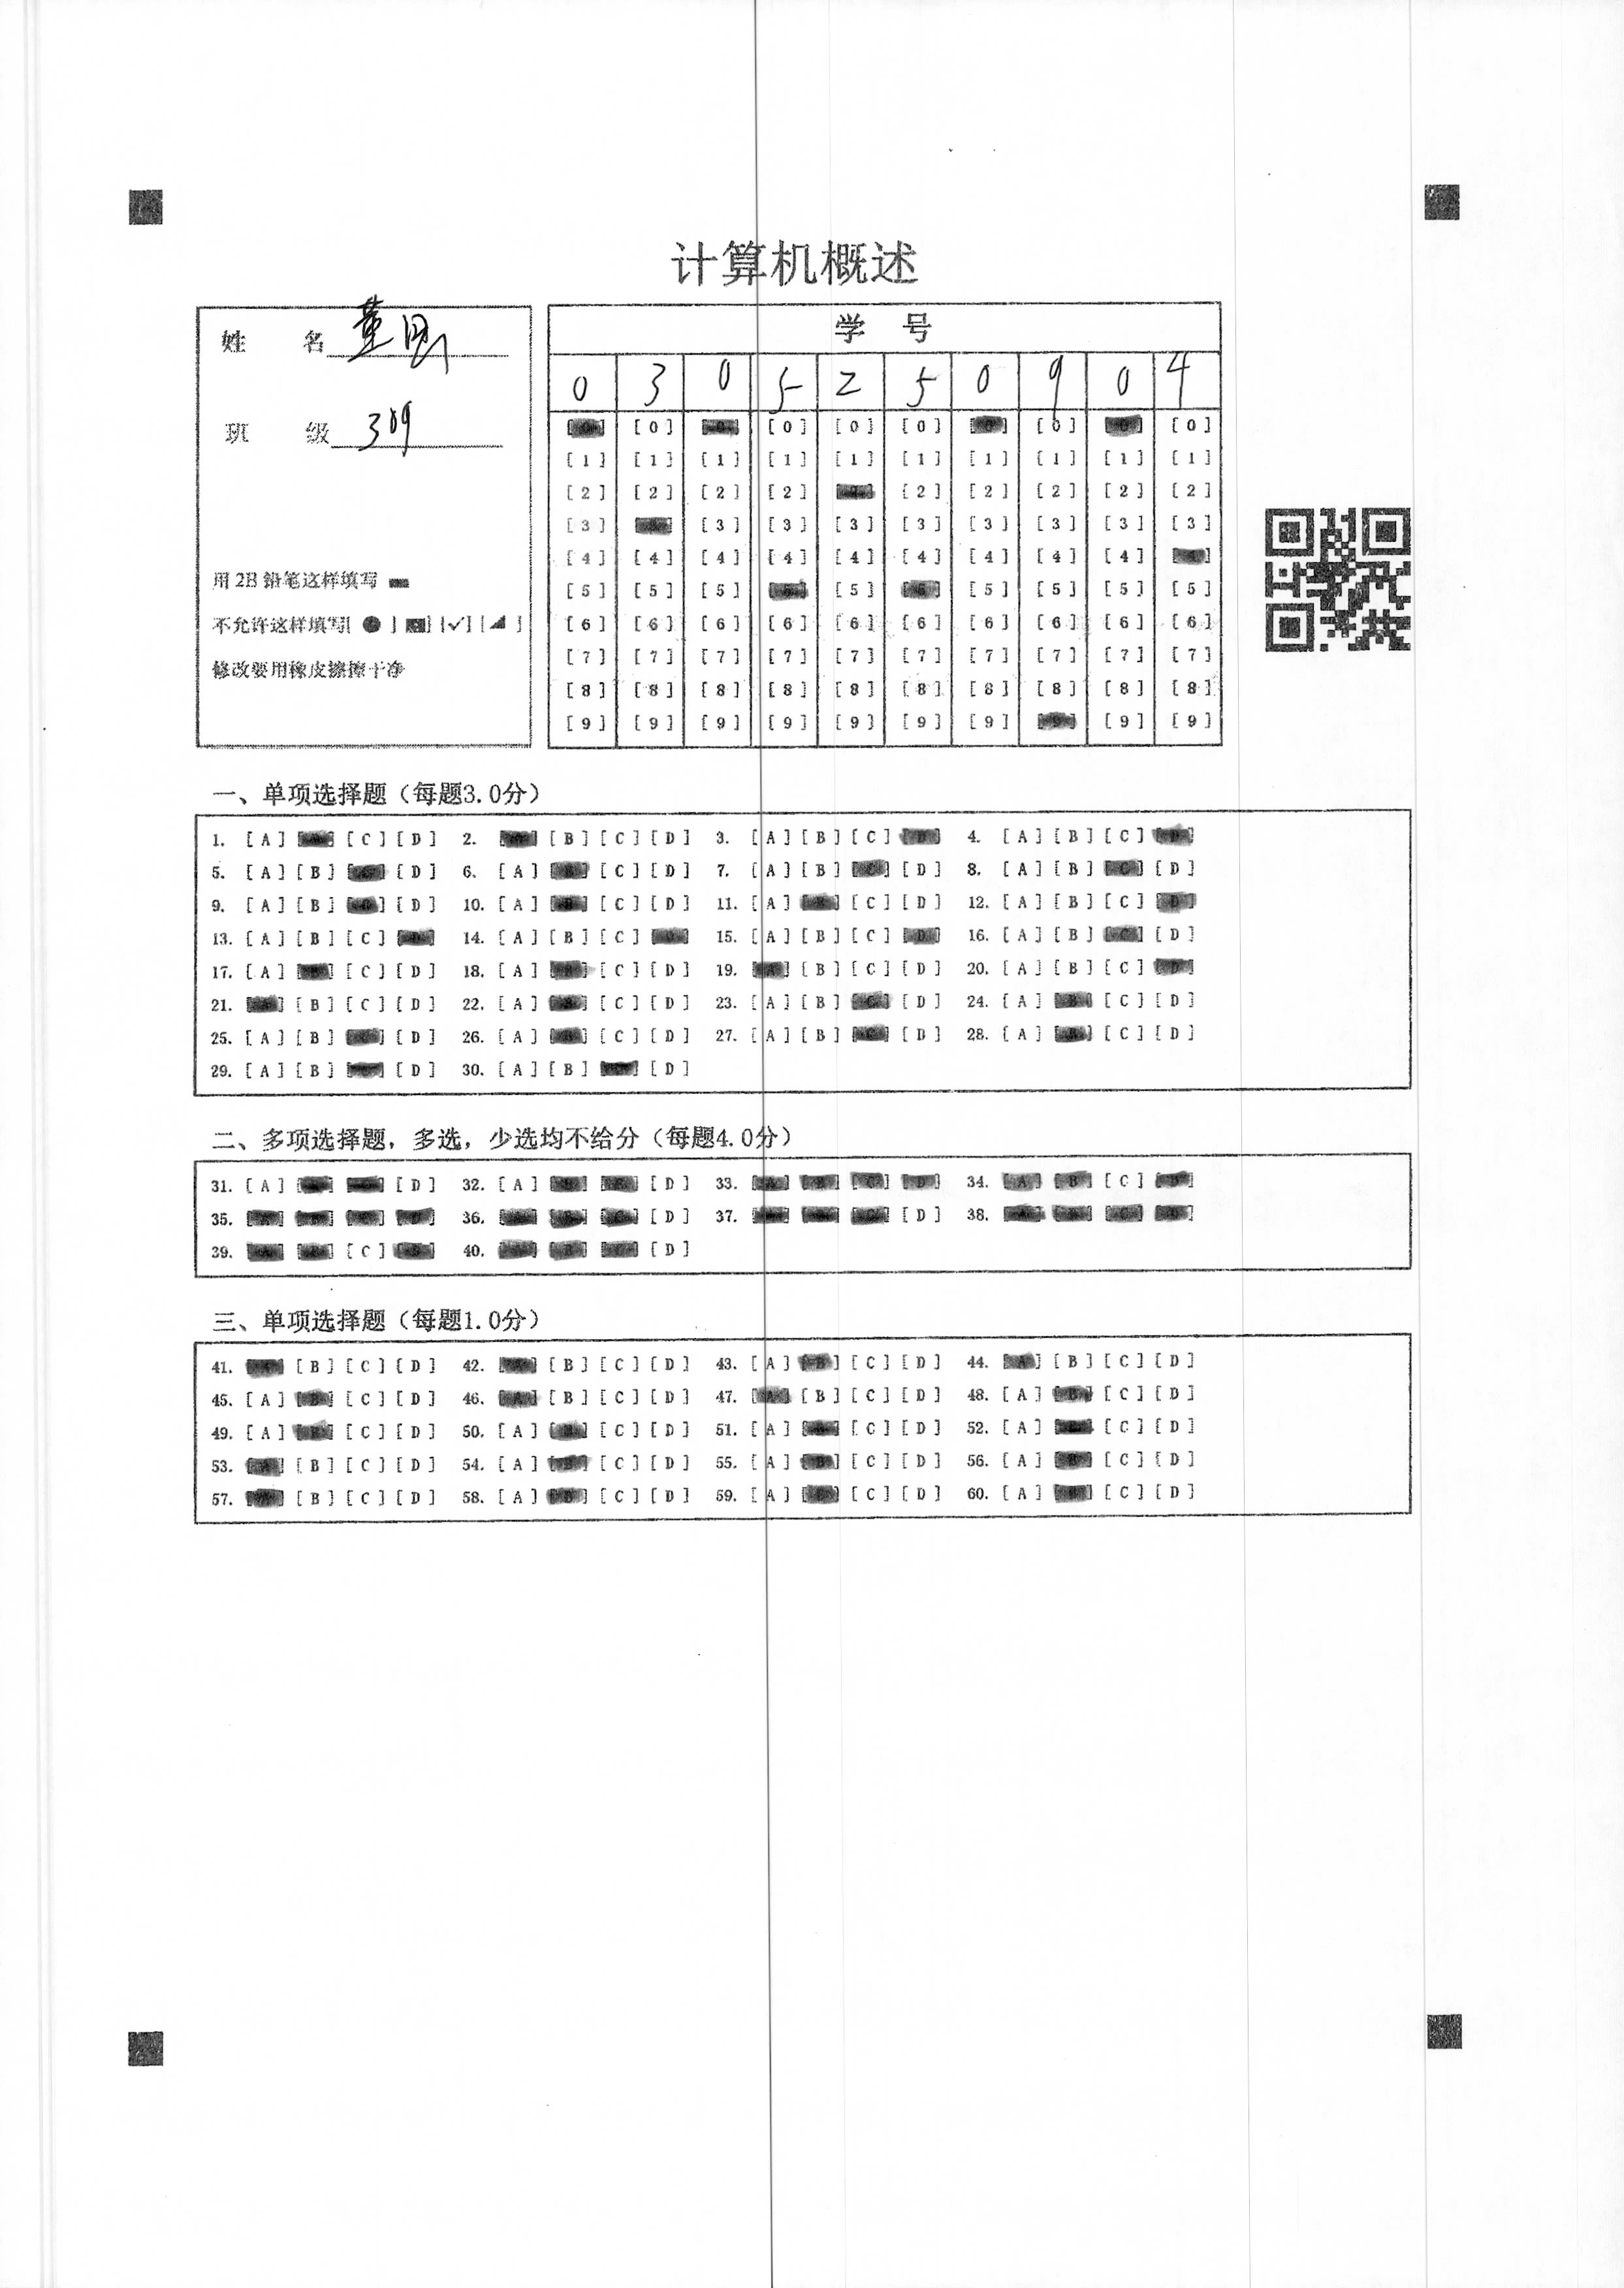 计算机概述
姓 名 董思
班 级 309
用 2B 铅笔这样填写
不允许这样填写[ ● ] [ ] [✓] [ ]
修改要用橡皮擦擦干净
学 号
0 3 0 5 2 5 0 9 0 4
[0] [0] [0] [0] [0] [0]
[1] [1] [1] [1] [1] [1] [1] [1] [1] [1]
[2] [2] [2] [2] [2] [2] [2] [2] [2]
[3] [3] [3] [3] [3] [3] [3] [3] [3]
[4] [4] [4] [4] [4] [4] [4] [4] [4]
[5] [5] [5] [5] [5] [5] [5] [5]
[6] [6] [6] [6] [6] [6] [6] [6] [6] [6]
[7] [7] [7] [7] [7] [7] [7] [7] [7] [7]
[8] [8] [8] [8] [8] [8] [8] [8] [8] [8]
[9] [9] [9] [9] [9] [9] [9] [9] [9]
一、单项选择题（每题3.0分）
1. [A] [C] [D] 2. [B] [C] [D] 3. [A] [B] [C] 4. [A] [B] [C]
5. [A] [B] [D] 6. [A] [C] [D] 7. [A] [B] [D] 8. [A] [B] [D]
9. [A] [B] [D] 10. [A] [C] [D] 11. [A] [C] [D] 12. [A] [B] [C]
13. [A] [B] [C] 14. [A] [B] [C] 15. [A] [B] [C] 16. [A] [B] [D]
17. [A] [C] [D] 18. [A] [C] [D] 19. [B] [C] [D] 20. [A] [B] [C]
21. [B] [C] [D] 22. [A] [C] [D] 23. [A] [B] [D] 24. [A] [C] [D]
25. [A] [B] [D] 26. [A] [C] [D] 27. [A] [B] [D] 28. [A] [C] [D]
29. [A] [B] [D] 30. [A] [B] [D]
二、多项选择题，多选，少选均不给分（每题4.0分）
31. [A] [D] 32. [A] [D] 33. 34. [C]
35. 36. [D] 37. [D] 38.
39. [C] 40. [D]
三、单项选择题（每题1.0分）
41. [B] [C] [D] 42. [B] [C] [D] 43. [A] [C] [D] 44. [B] [C] [D]
45. [A] [C] [D] 46. [B] [C] [D] 47. [B] [C] [D] 48. [A] [C] [D]
49. [A] [C] [D] 50. [A] [C] [D] 51. [A] [C] [D] 52. [A] [C] [D]
53. [B] [C] [D] 54. [A] [C] [D] 55. [A] [C] [D] 56. [A] [C] [D]
57. [B] [C] [D] 58. [A] [C] [D] 59. [A] [C] [D] 60. [A] [C] [D]